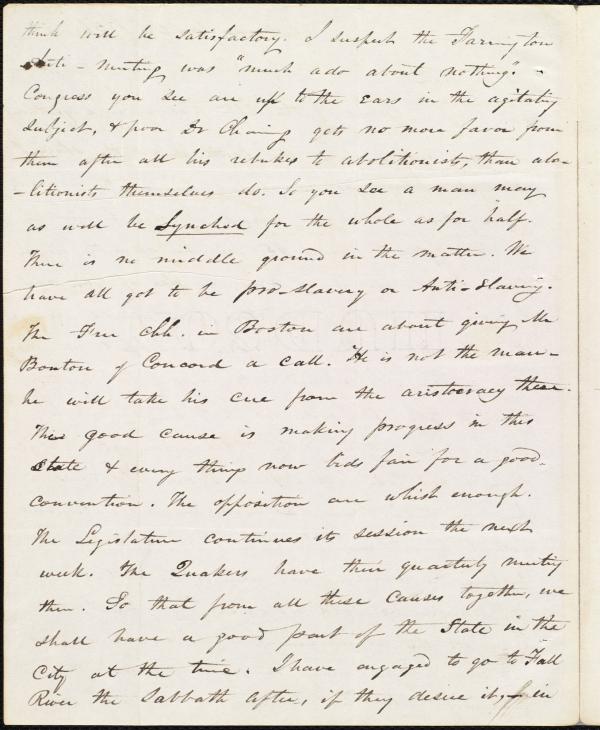 think will be satisfactory. I suspect the Farrington
Anti-meeting was "much ado about nothing".
Congress you see are up to the ears in the agitating
subject, & poor Dr Channing gets no more favor from
them after all his rebukes to abolitionists, than abo-
-litionists themselves do. So you see a man may
as well be Lynched for the whole as for half.
There is no middle ground in the matter. We
have all got to be pro-slavery or Anti-slavery.
The Free chh. in Boston are about giving Mr
Bouton of Concord a call. He is not the man -
he will take his cue from the aristocracy there.
The good cause is making progress in this
state & every thing now bids fair for a good
convention. The opposition are whist enough.
The Legislature continues its session the next
week. The Quakers have their quarterly meeting
then. So that from all these causes together, we
shall have a good part of the State in the
City at the time. I have engaged to go to Fall
River the Sabbath after, if they desire it, in